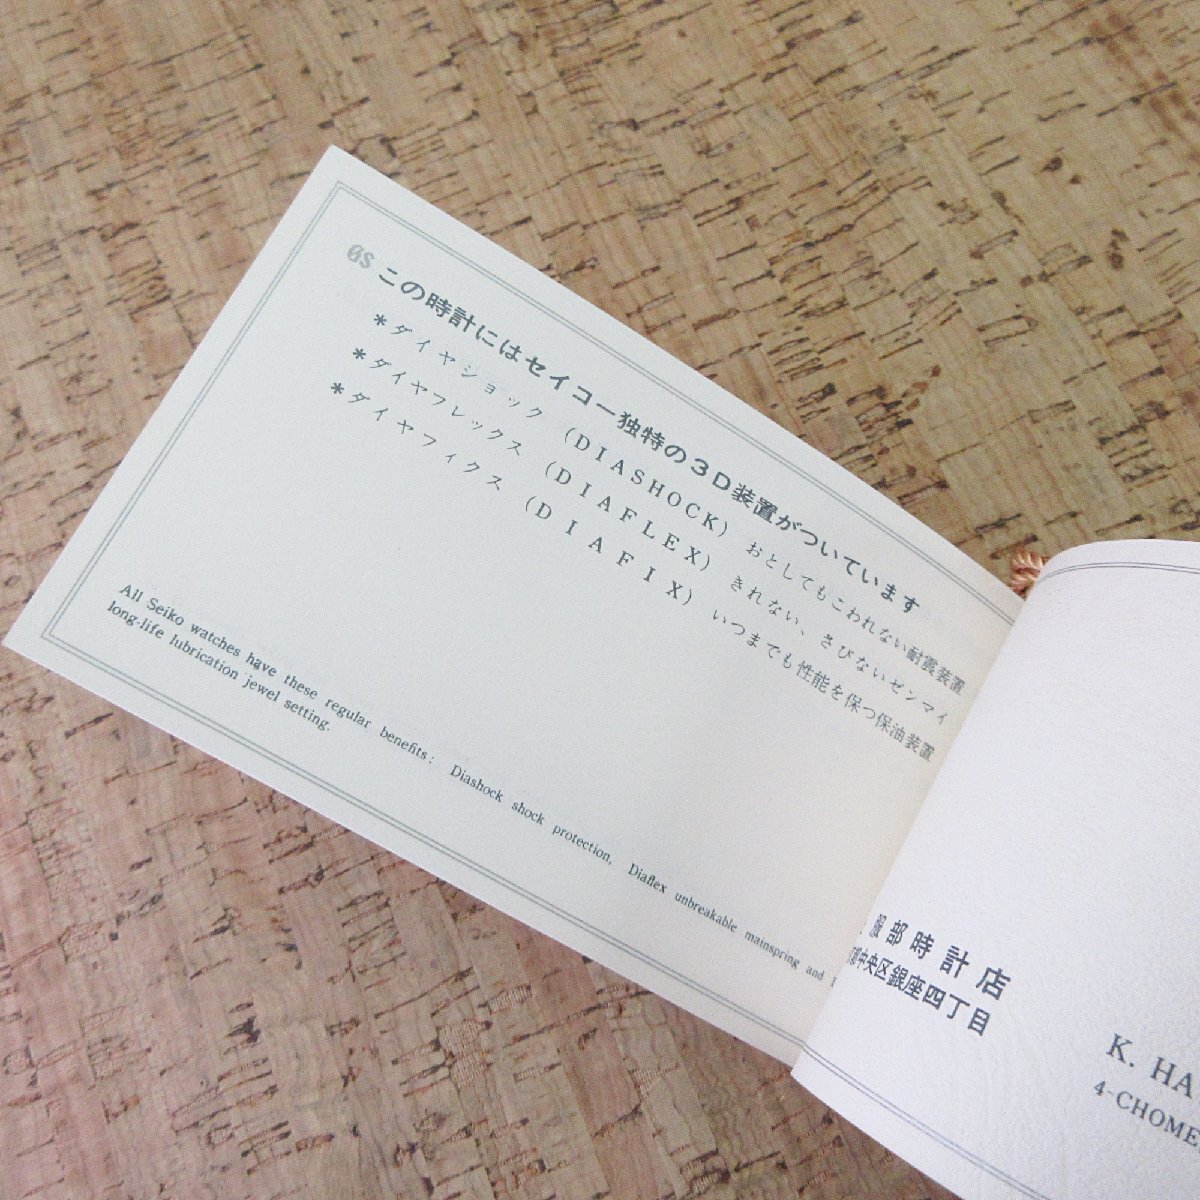 GS この時計にはセイコー独特の3D装置がついています
*ダイヤショック (DIASHOCK) おとしてもこわれない耐震装置
*ダイヤフレックス (DIAFLEX) きれない、さびないゼンマイ
*ダイヤフィクス (DIAFIX) いつまでも性能を保つ保油装置
All Seiko watches have these regular benefits: Diashock shock protection, Diaflex unbreakable mainspring and
long-life lubrication jewel setting.
服部時計店
中央区銀座四丁目
K. HA
4-CHOME,